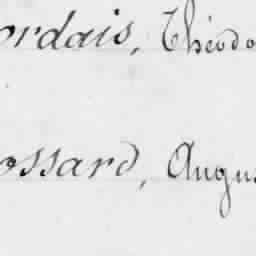 ordais, Théodo
ossard, Augus